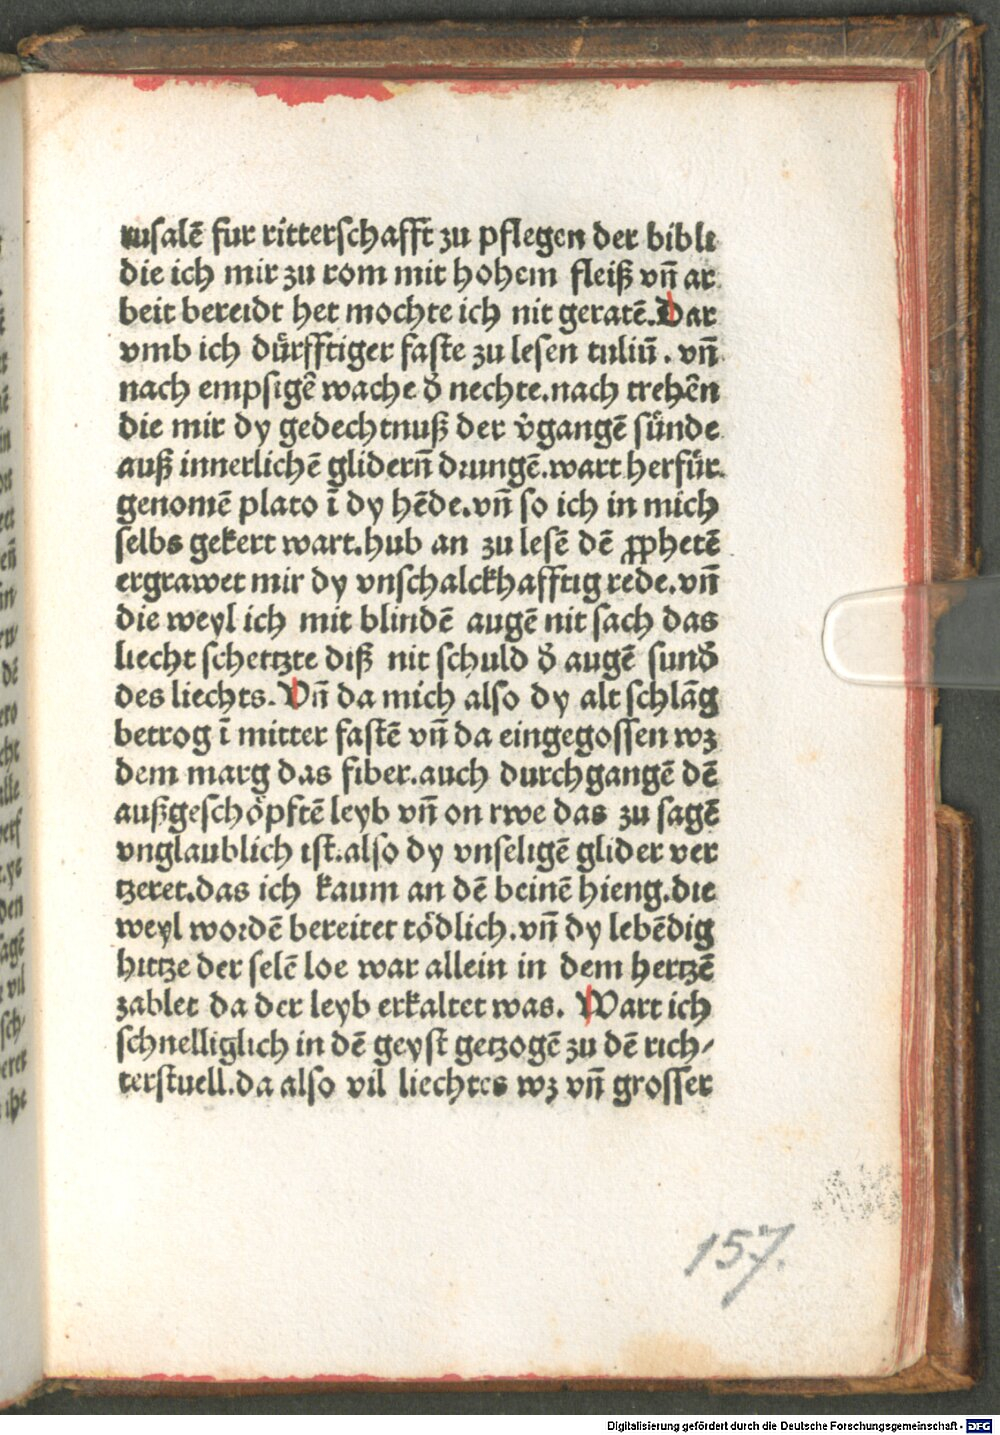 rusalē fur ritterschafft zu pflegen der bibli
die ich mir zu rom mit hohem fleiß vñ ar
beit bereidt het mochte ich nit geratē. Dar
vmb ich dürfftiger faste zu lesen tuliū. vñ
nach empsigē wache d̄ nechte. nach trehēn
die mir dy gedechtnuß der v̄gangē sünde
auß innerlichē gliderñ drungē. wart herfür
genomē plato ī dy hēde. vñ so ich in mich
selbs gekert wart. hub an zu lesē dē ꝓphetē
ergrawet mir dy vnschalckhafftig rede. vñ
die weyl ich mit blindē augē nit sach das
liecht schertzte diß nit schuld d̄ augē sund̄
des liechts. Vñ da mich also dy alt schlāg
betrog ī mitter fastē vñ da eingegossen wz
dem marg das fiber. auch durchgangē dē
außgeschöpftē leyb vñ on rwe das zu sagē
vnglaublich ist. also dy vnseligē glider ver
tzeret. das ich kaum an dē beinē hieng. die
weyl wordē bereitet tödlich. vñ dy lebēdig
hittze der selē loe war allein in dem hertzē
zablet da der leyb erkaltet was. Wart ich
schnelliglich in dē geyst getzogē zu dē rich/
terstuell. da also vil liechtes wz vñ grosser
157.
Digitalisierung gefördert durch die Deutsche Forschungsgemeinschaft - DFG